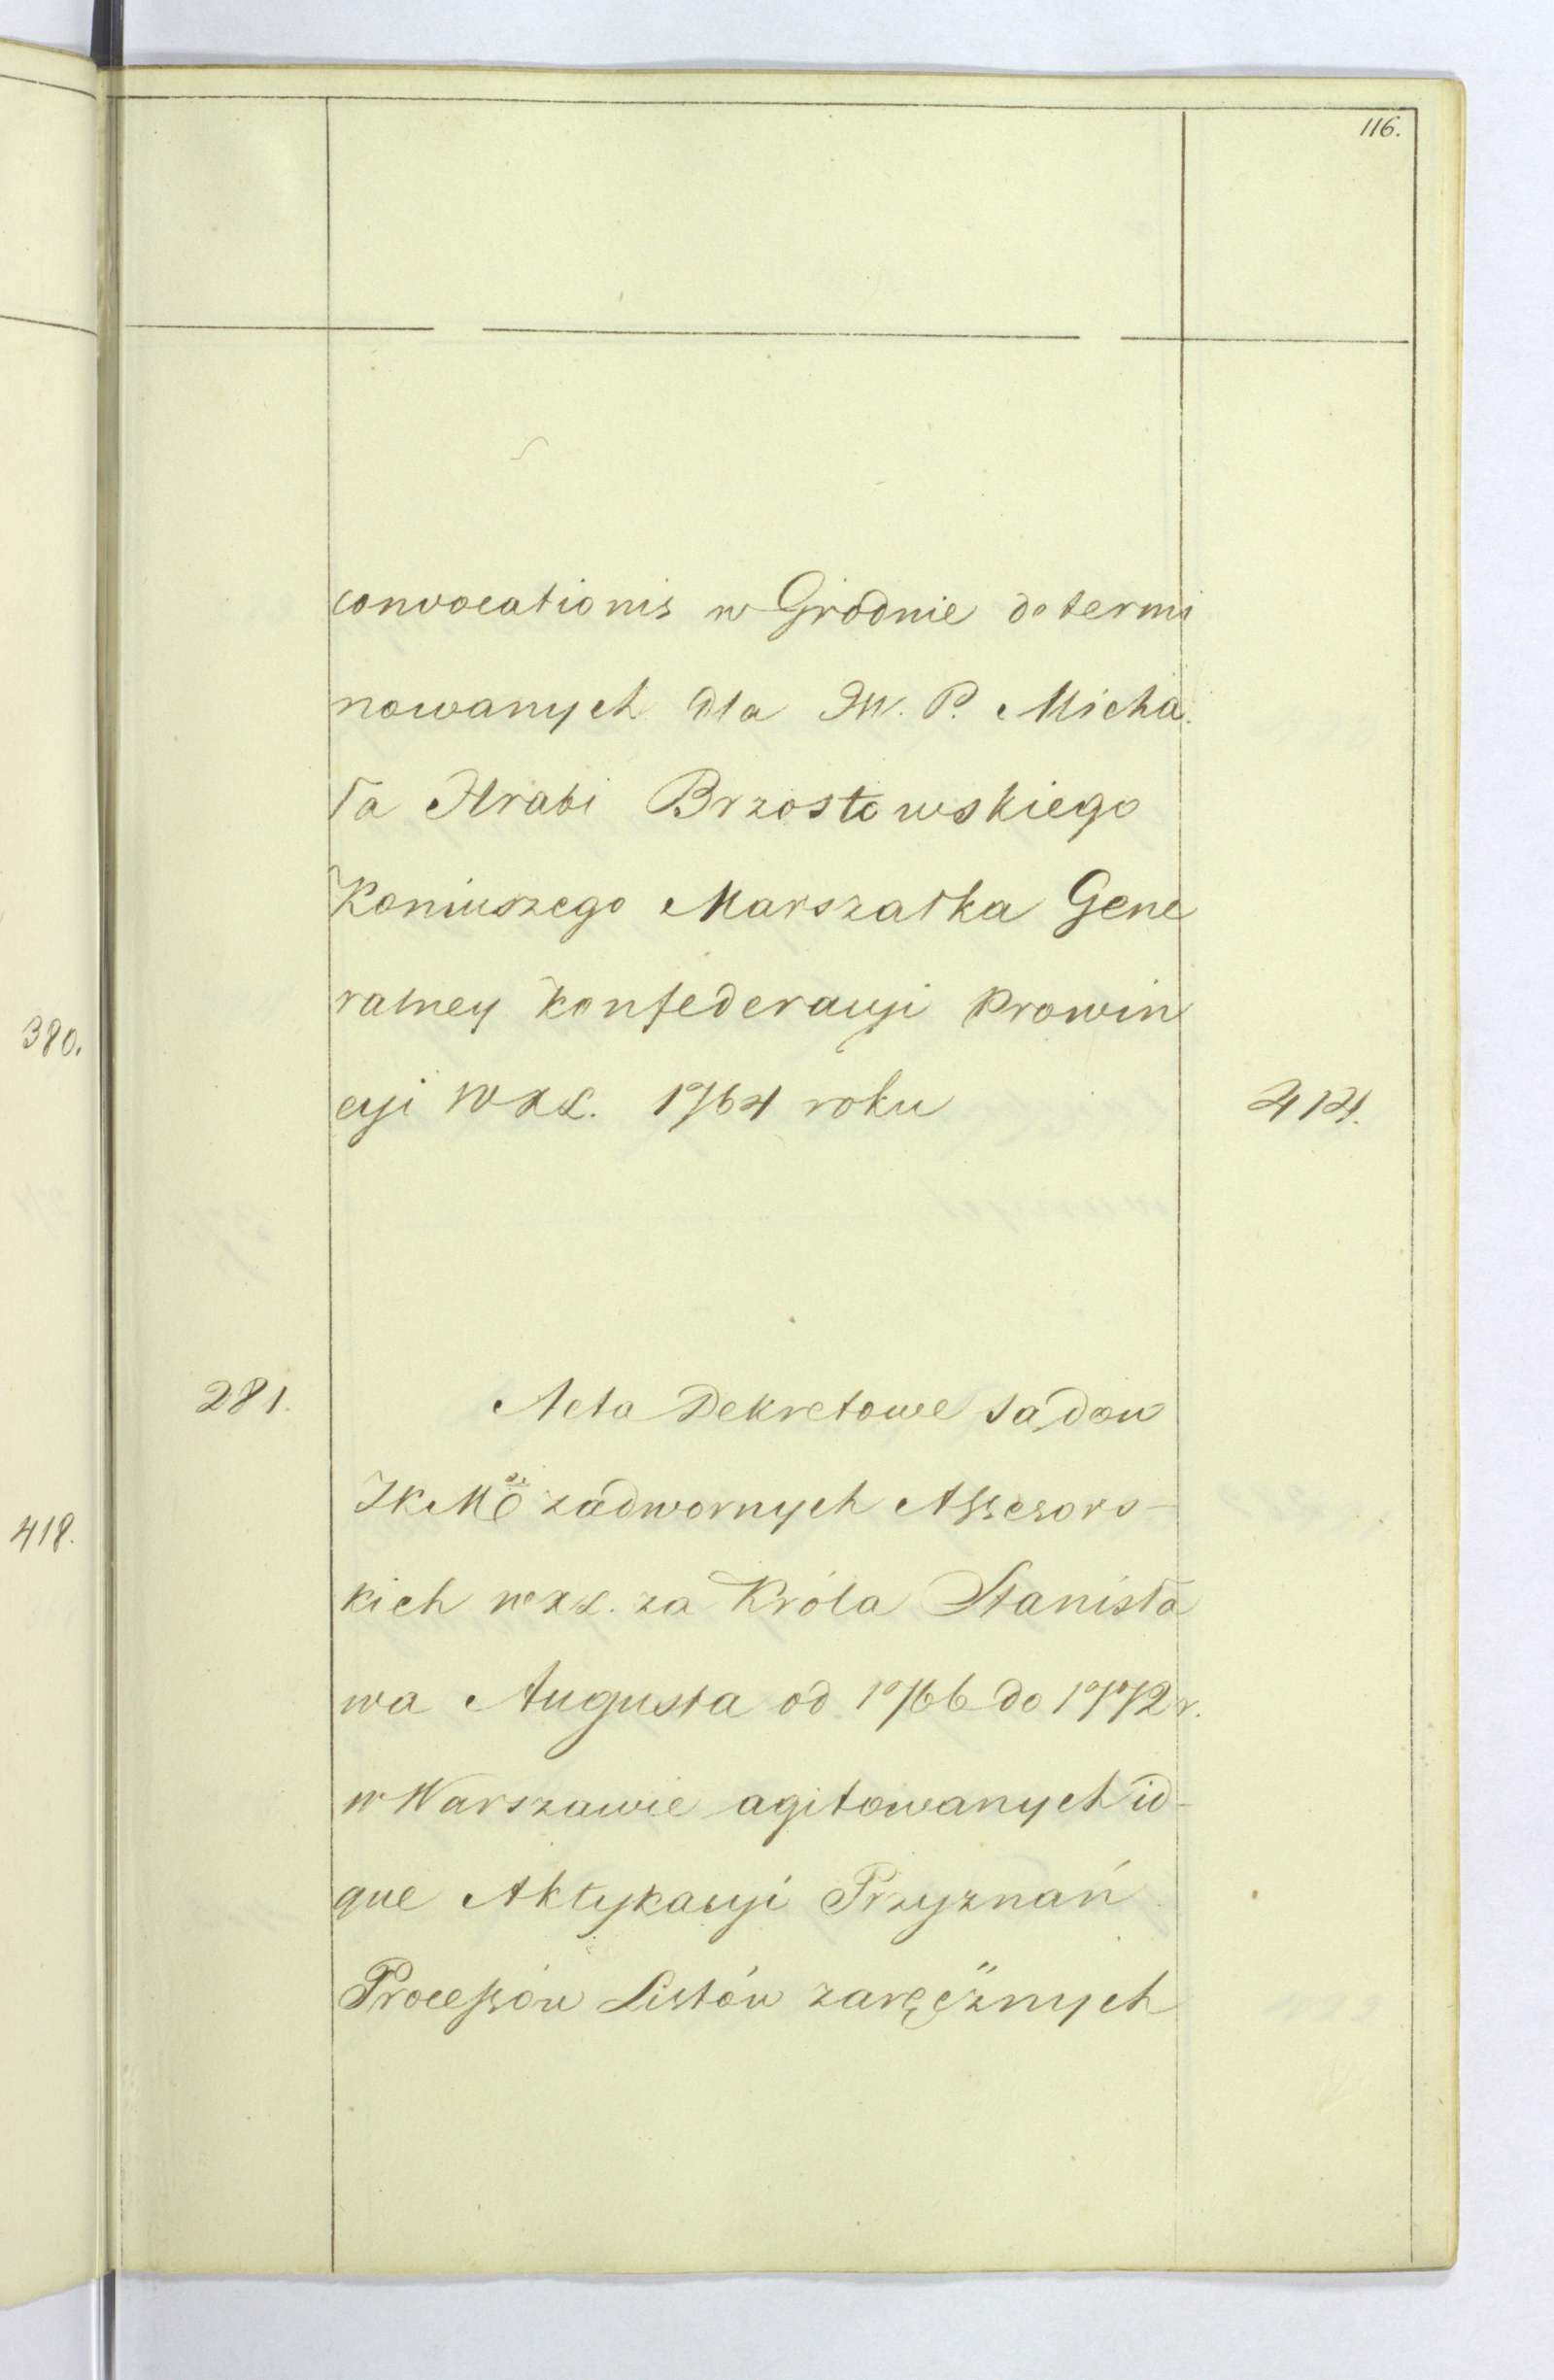 116.
convocationis w Grodnie determi
nowanych dla JW. P. Micha
ła Hrabi Brzostowskiego
Koniuszego Marszałka Gene
ralney Konfederacyi Prowin
cyi WXL. 1764 roku 414.
281. Acta Dekretowe sądow
JKMō zadwornych Assesors-
kich WXL. za Króla Stanisła
wa Augusta od 1766 do 1772 r.
w Warszawie agitowanych id-
que Aktykacyi Przyznań
Processów Listów zaręcznych
380.
418.